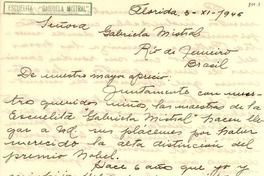 ESCUELITA "GABRIELA MISTRAL"
Florida, 5-XI-1945
Señora
Gabriela Mistral
Río de Janeiro
Brasil
De nuestro mayor aprecio:
Juntamente con nues-
tros queridos niños, las maestras de la
Escuelita "Gabriela Mistral" hacen lle-
gar a Ud. sus plácemes por haber
merecido la alta distinción del
premio Nobel.
Hace 6 años que yo y